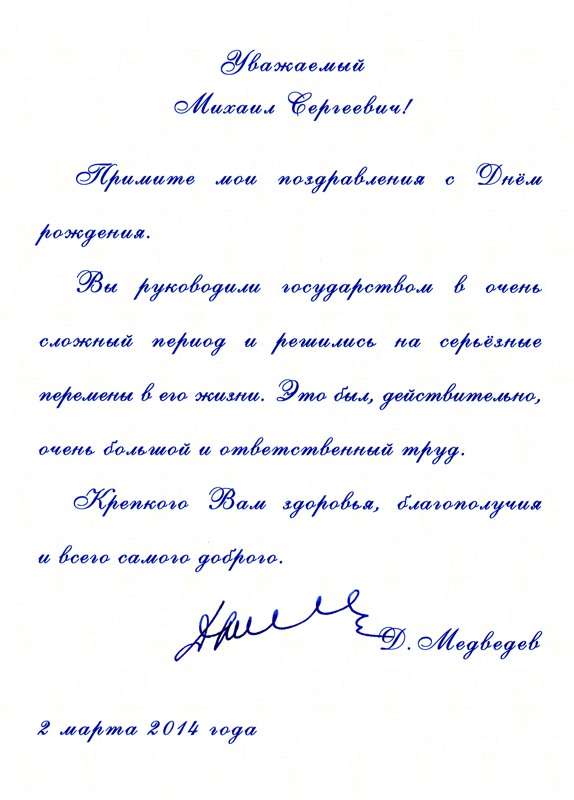 Уважаемый
Михаил Сергеевич!
Примите мои поздравления с Днём
рождения.
Вы руководили государством в очень
сложный период и решились на серьёзные
перемены в его жизни. Это был, действительно,
очень большой и ответственный труд.
Крепкого Вам здоровья, благополучия
и всего самого доброго.
Д. Медведев
2 марта 2014 года